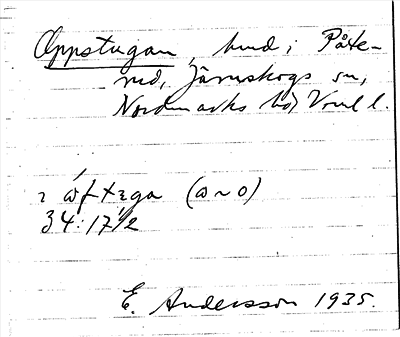 Oppstugan, hmd i Påte-
rud, Järnskogs sn,
Nordmarks hd Vrml l.
(a ~ o)
34:17 1/2
E. Andersson 1935.